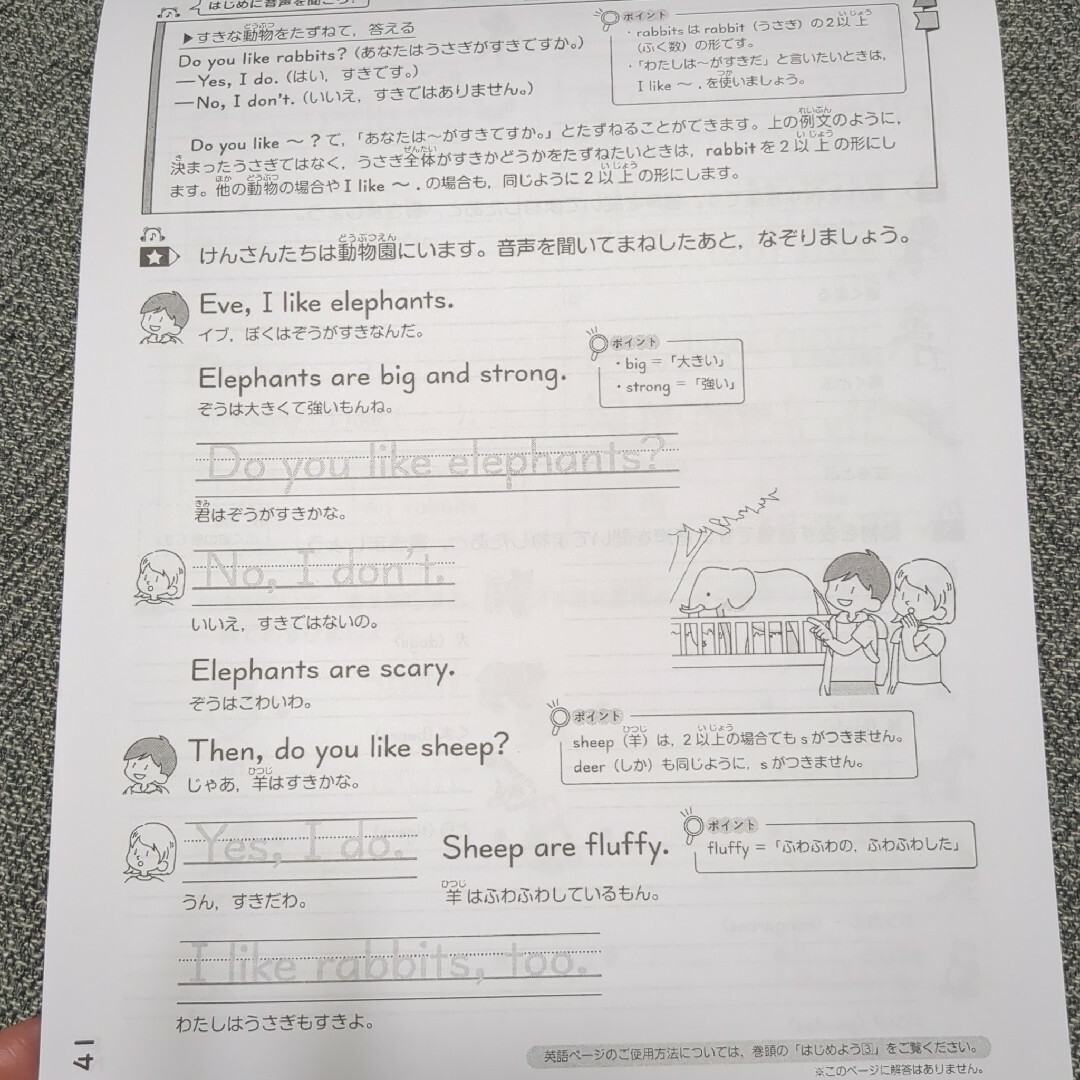 はじめに音声を聞こう！
▶すきな動物をたずねて，答える
Do you like rabbits?（あなたはうさぎがすきですか。）
—Yes, I do.（はい，すきです。）
—No, I don't.（いいえ，すきではありません。）
ポイント
・rabbits は rabbit（うさぎ）の2以上
（ふく数）の形です。
・「わたしは～がすきだ」と言いたいときは，
I like ～ . を使いましょう。
Do you like ～ ? で，「あなたは～がすきですか。」とたずねることができます。上の例文のように，
決まったうさぎではなく，うさぎ全体がすきかどうかをたずねたいときは，rabbit を2以上の形にし
ます。他の動物の場合や I like ～ . の場合も，同じように2以上の形にします。
けんさんたちは動物園にいます。音声を聞いてまねしたあと，なぞりましょう。
Eve, I like elephants.
イブ，ぼくはぞうがすきなんだ。
Elephants are big and strong.
ぞうは大きくて強いもんね。
ポイント
・big ＝「大きい」
・strong ＝「強い」
Do you like elephants?
君はぞうがすきかな。
No, I don't.
いいえ，すきではないの。
Elephants are scary.
ぞうはこわいわ。
Then, do you like sheep?
じゃあ，羊はすきかな。
ポイント
sheep（羊）は，2以上の場合でも s がつきません。
deer（しか）も同じように，s がつきません。
Yes, I do.
うん，すきだわ。
Sheep are fluffy.
羊はふわふわしているもん。
ポイント
fluffy ＝「ふわふわの，ふわふわした」
I like rabbits, too.
わたしはうさぎもすきよ。
41
英語ページのご使用方法については、巻頭の「はじめよう③」をご覧ください。
※このページに解答はありません。